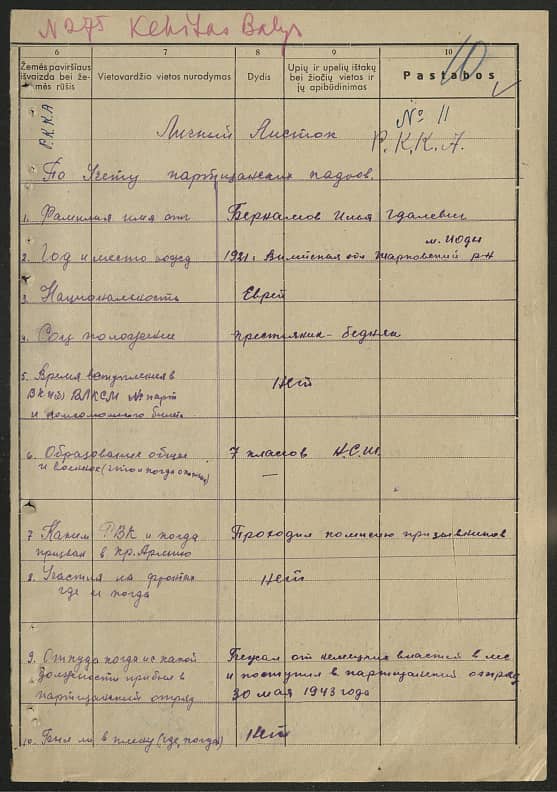 N 275 Kekštas Balys
6 7 8 9 10
Žemės paviršiaus išvaizda bei žemės rūšis
Vietovardžio vietos nurodymas
Dydis
Upių ir upelių ištakų bei žiočių vietos ir jų apibūdinimas
Pastabos
10
Р.К.К.А
No 11
Личный Листок
Р.К.К.А.
По Учету партизанских кадров.
1. Фамилия имя отч Беркамов Илья Гдалевич
м. Иоды
2. Год и место рожд 1921 г Вилейская обл Шарковский р-н
3. Национальность Еврей
4. Соц положение крестьянин-бедняк
5. Время вступления в
ВКП(б) ВЛКСМ № парт
и комсомольского билета
Нет
6. Образование общее 7 классов Н.С.Ш.
и военное (что и когда окончил) —
7 Каким РВК и когда Проходил комиссию призывников
призван в Кр. Армию
8. Участия на фронтах Нет
где и когда
9. Откуда когда и с какой Бежал от немецких властей в лес
должности прибыл в и поступил в партизанский отряд
партизанский отряд 30 мая 1943 года
10. Был ли в плену (где, когда) Нет